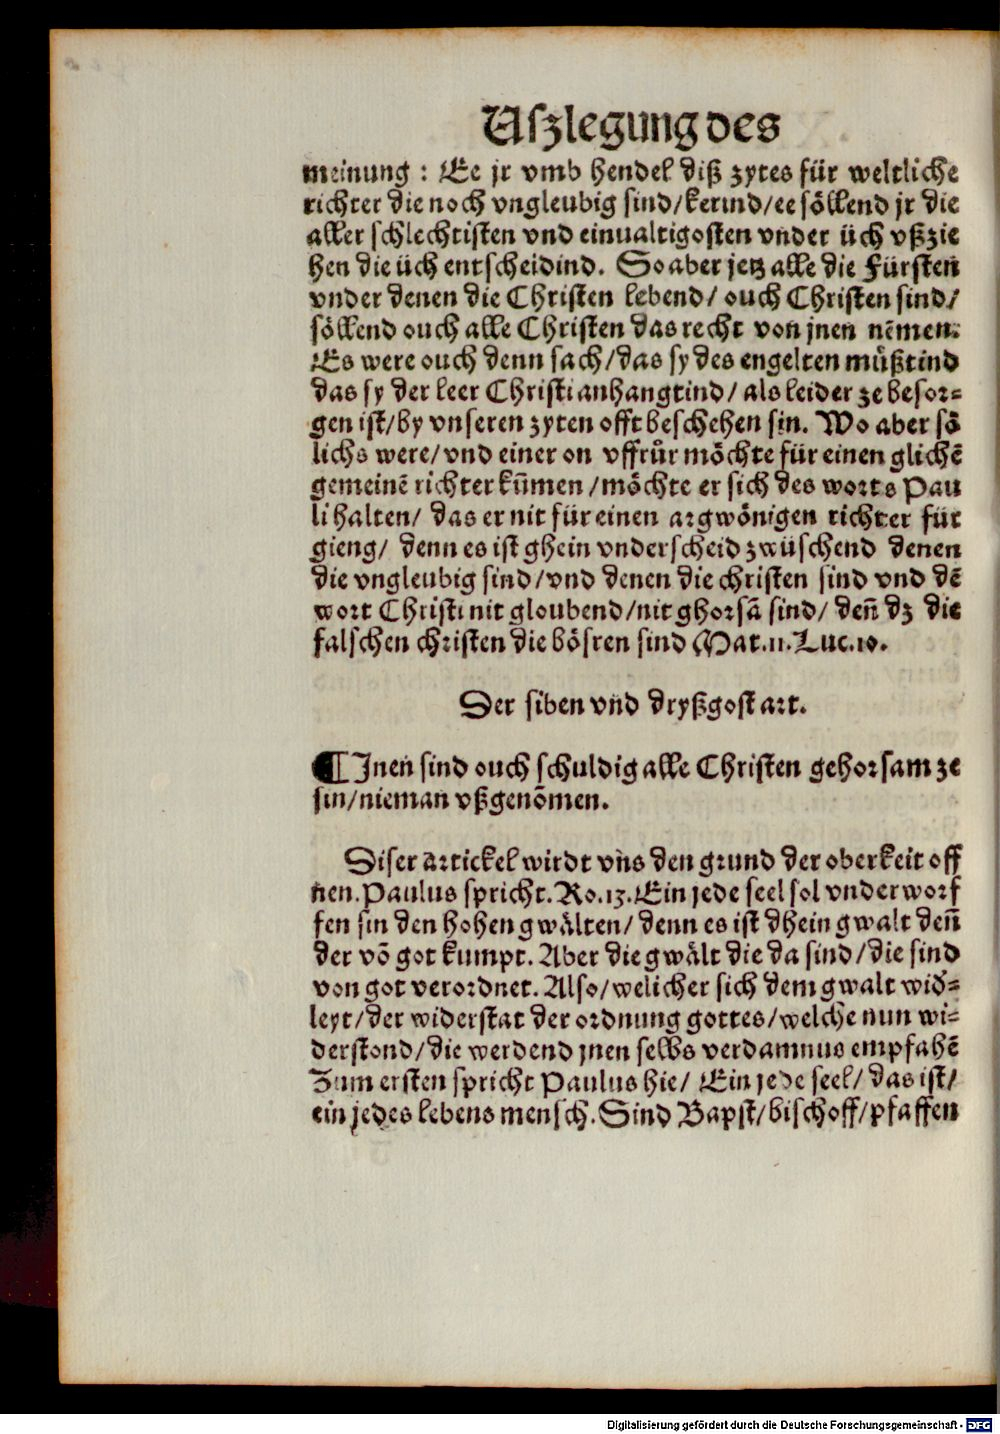 Uszlegung des
meinung : Ee jr vmb hendel diß zytes für weltliche
richter die noch vngleubig sind/kerind/ee söllend jr die
aller schlechtisten vnd einualtigosten vnder üch vßzie
hen die üch entscheidind. So aber jetz alle die Fürsten
vnder denen die Christen lebend/ ouch Christen sind/
söllend ouch alle Christen das recht von jnen nēmen.
Es were ouch denn sach/das sy des engelten müßtind
das sy der leer Christi anhangtind/ als leider ze besor⸗
gen ist/by vnseren zyten offt beschehen sin. Wo aber sö
lichs were/vnd einer on vffrůr möchte für einen glichē
gemeinē richter kūmen/möchte er sich des worts Pau
li halten/ das er nit für einen argwönigen richter für
gieng/ denn es ist ghein vnderscheid zwüschend denen
die vngleubig sind/vnd denen die christen sind vnd dē
wort Christi nit gloubend/nit ghorsā sind/ deñ dz die
falschen christen die bösren sind Mat.11.Luc.10.
Der siben vnd dryßgost art.
¶ Jnen sind ouch schuldig alle Christen gehorsam ze
sin/nieman vßgenōmen.
Diser artickel wirdt vns den grund der oberkeit off
nen.Paulus spricht.Ro.13.Ein jede seel sol vnderworf
fen sin den hohen gwälten/ denn es ist dhein gwalt deñ
der vō got kumpt. Aber die gwält die da sind/die sind
von got verordnet. Also/welicher sich dem gwalt wid⸗
leyt/der widerstat der ordnung gottes/welche nun wi⸗
derstond/die werdend jnen selbs verdamnus empfahē
Zum ersten spricht Paulus hie/ Ein jede seel/ das ist/
ein jedes lebens mensch. Sind Bapst/bischoff/pfaffen
Digitalisierung gefördert durch die Deutsche Forschungsgemeinschaft - DFG